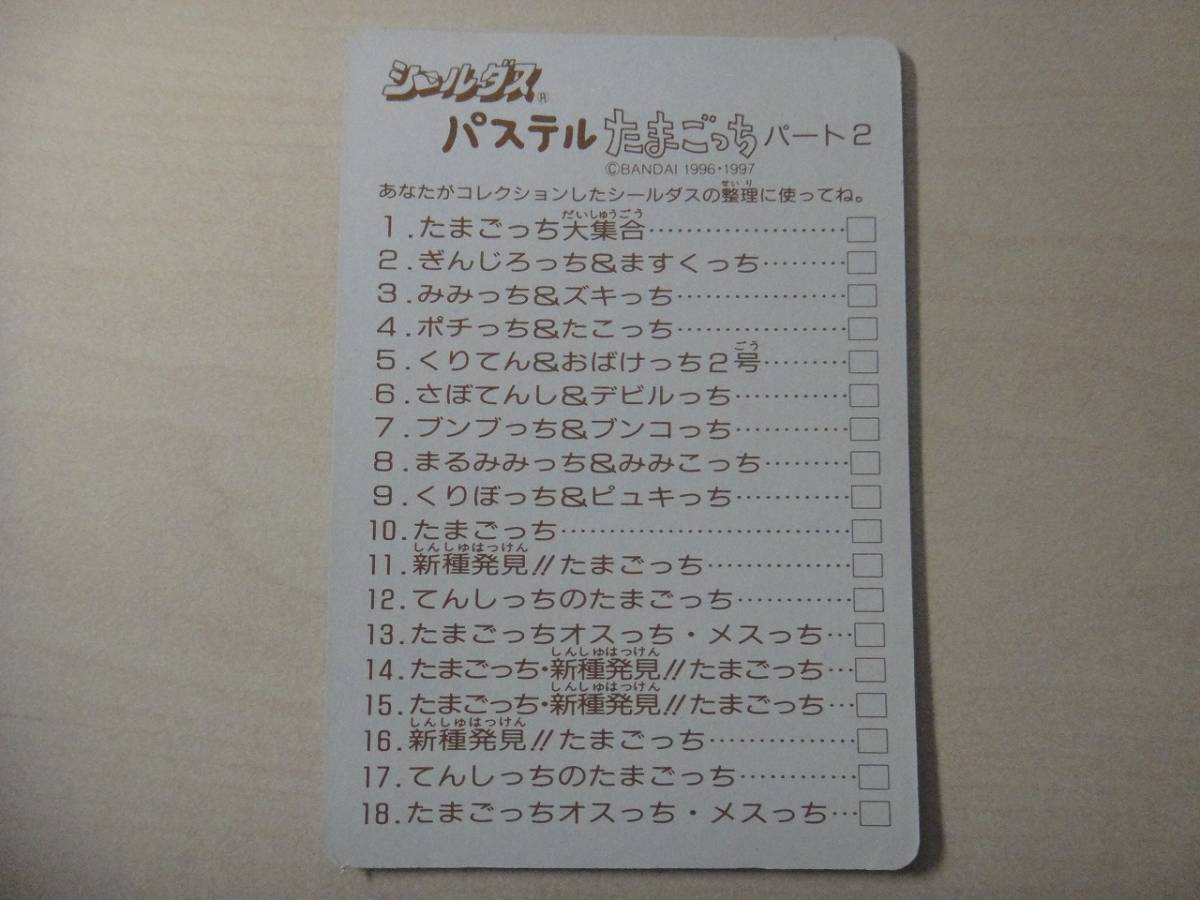 シールダス®
パステル たまごっち パート2
©BANDAI 1996・1997
せいり
あなたがコレクションしたシールダスの整理に使ってね。
だいしゅうごう
1.たまごっち大集合……………………□
2.ぎんじろっち&ますくっち………□
3.みみっち&ズキっち………………□
4.ポチっち&たこっち………………□
ごう
5.くりてん&おばけっち2号………□
6.さぼてんし&デビルっち…………□
7.ブンブっち&ブンコっち…………□
8.まるみみっち&みみこっち………□
9.くりぼっち&ピュキっち…………□
10.たまごっち……………………………□
しんしゅはっけん
11.新種発見!!たまごっち……………□
12.てんしっちのたまごっち…………□
13.たまごっちオスっち・メスっち…□
しんしゅはっけん
14.たまごっち・新種発見!!たまごっち…□
しんしゅはっけん
15.たまごっち・新種発見!!たまごっち…□
しんしゅはっけん
16.新種発見!!たまごっち……………□
17.てんしっちのたまごっち…………□
18.たまごっちオスっち・メスっち…□